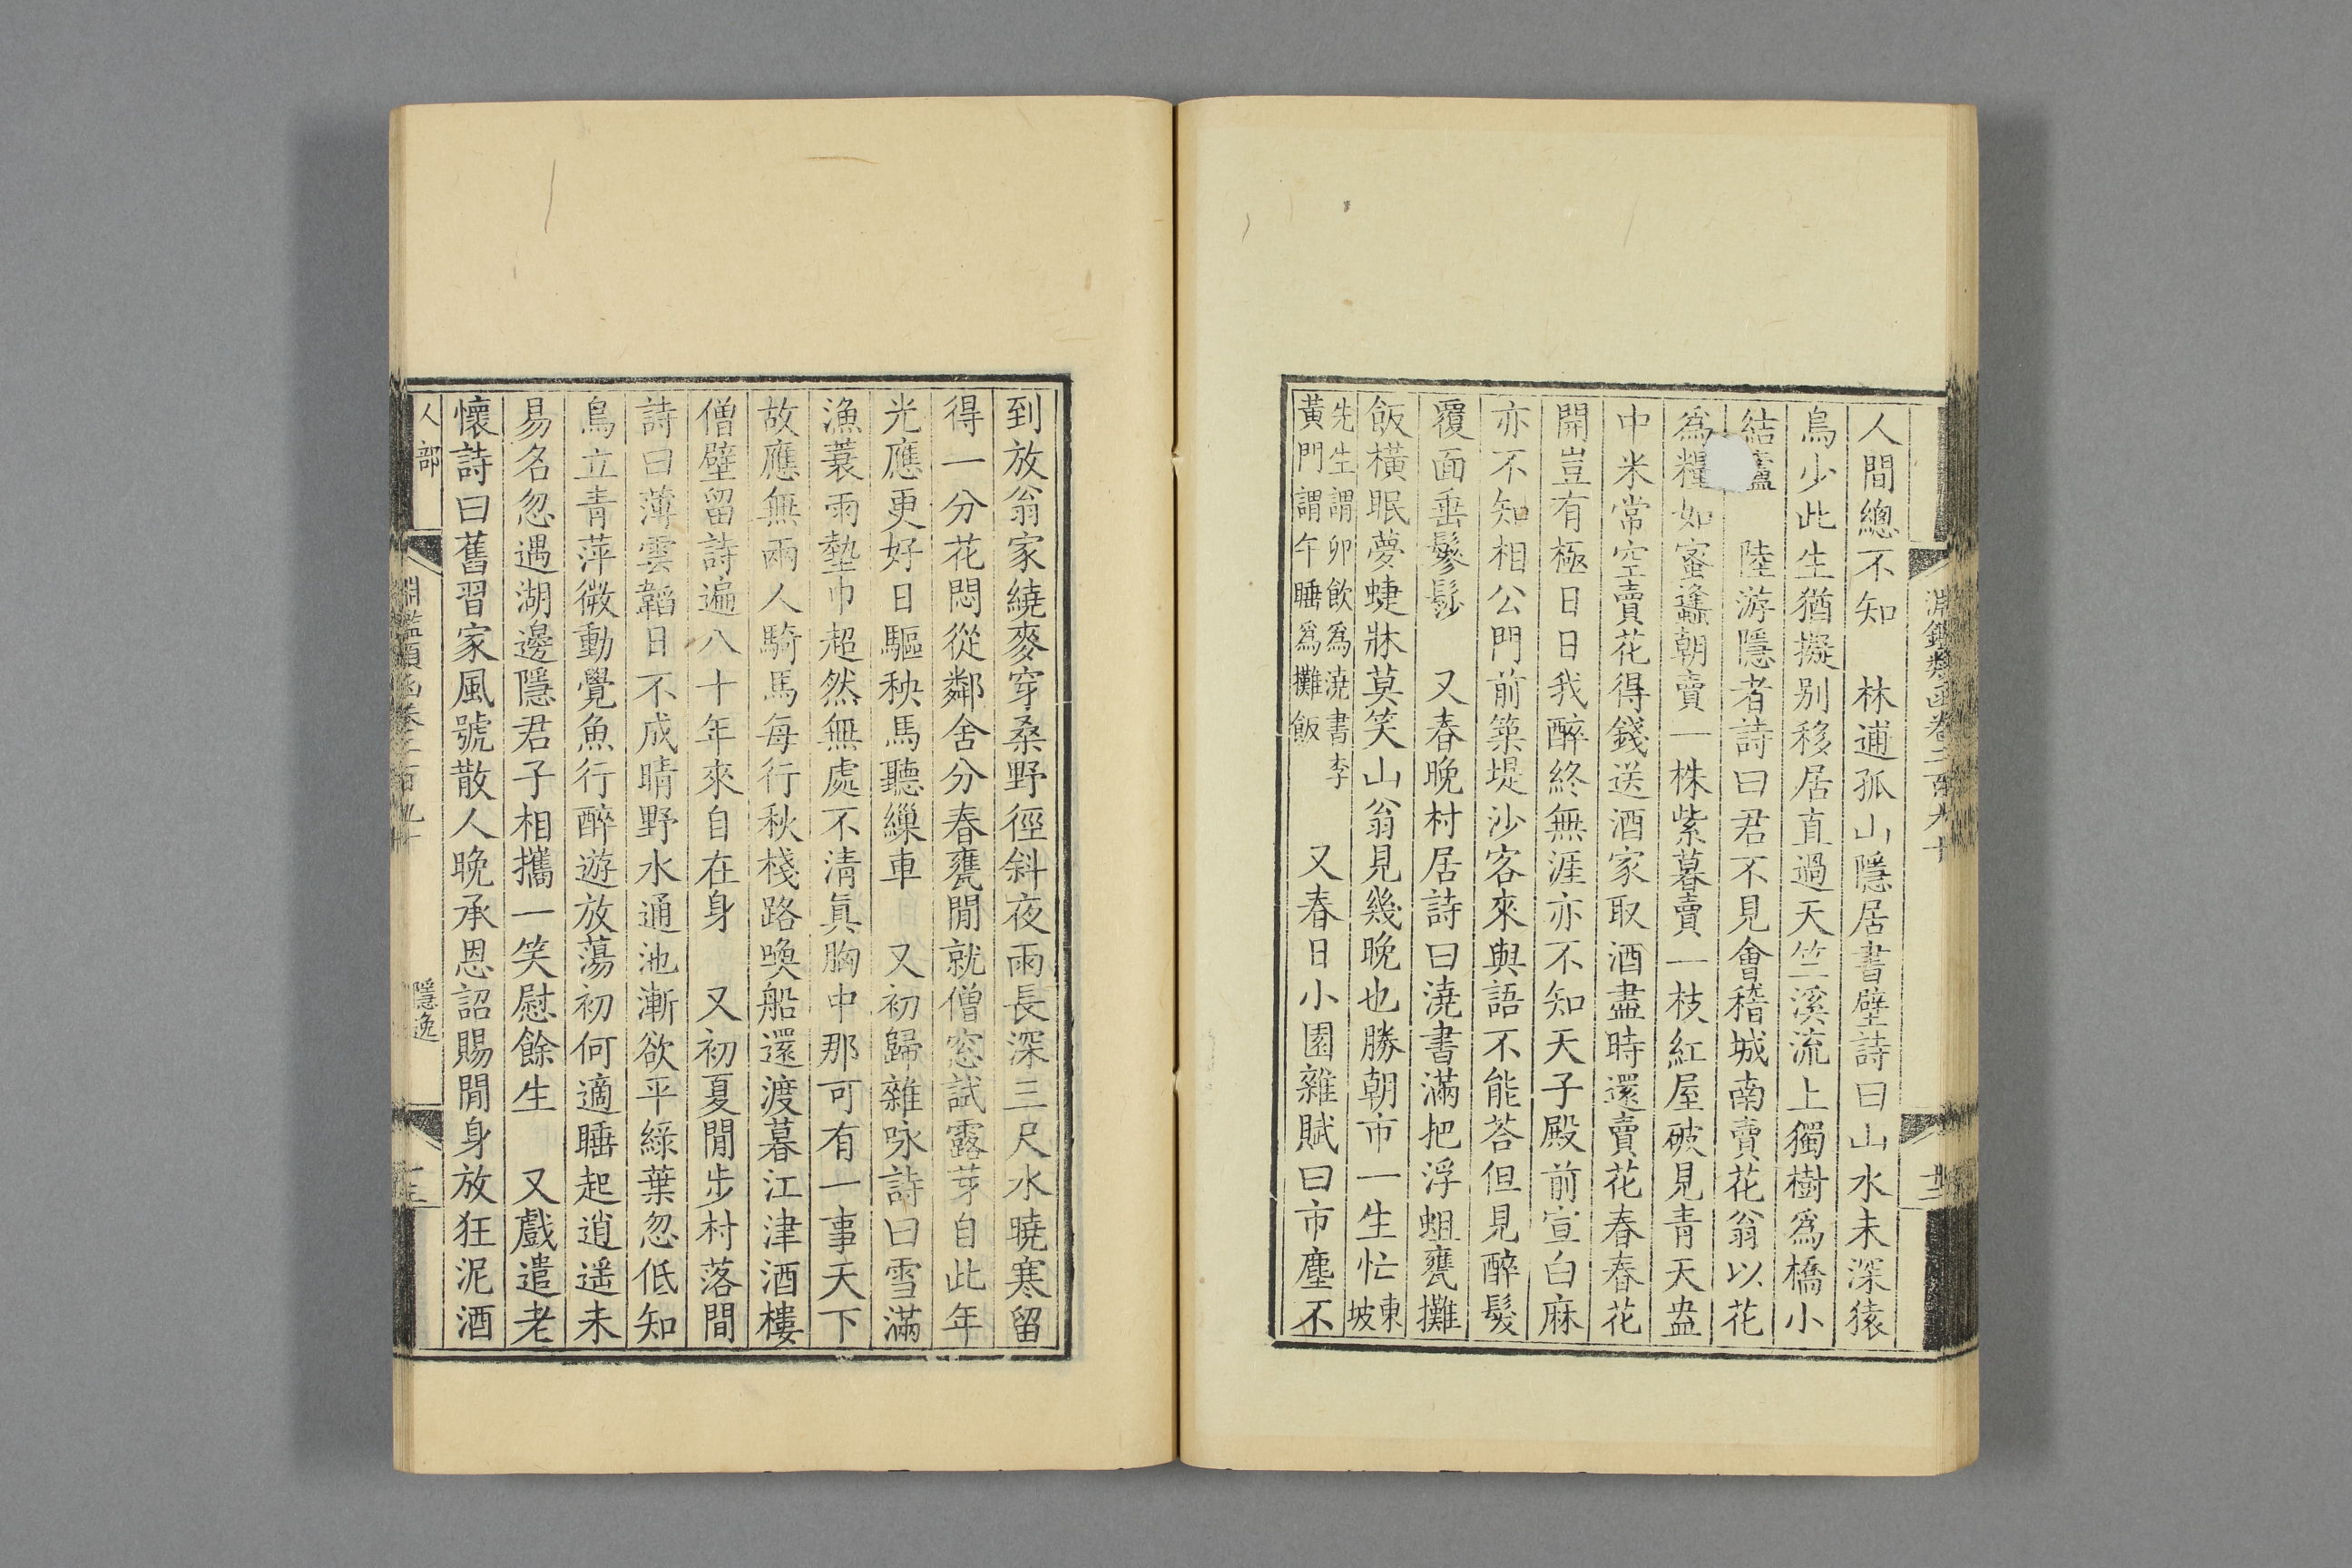 淵鑑類函卷二百九十
人間總不知　林逋孤山隱居書壁詩曰山水未深猿
鳥少此生猶擬别移居直過天竺溪流上獨樹爲橋小
結廬　陸游隱者詩曰君不見會稽城南賣花翁以花
爲糧如蜜蠭朝賣一株紫暮賣一枝紅屋破見青天盎
中米常空賣花得錢送酒家取酒盡時還賣花春春花
開豈有極日日我醉終無涯亦不知天子殿前宣白麻
亦不知相公門前築堤沙客來與語不能荅但見醉髮
覆面垂鬖髿　又春晚村居詩曰澆書滿把浮蛆甕攤
飯橫眠夢蜨牀莫笑山翁見幾晚也勝朝市一生忙東
坡
先生謂卯飲爲澆書李
黃門謂午睡爲攤飯
又春日小園雜賦曰市塵不
到放翁家繞麥穿桑野徑斜夜雨長深三尺水曉寒留
得一分花悶從鄰舍分春甕閒就僧窓試露芽自此年
光應更好日驅秧馬聽繅車　又初歸雜咏詩曰雪滿
漁蓑雨墊巾超然無處不清眞胸中那可有一事天下
故應無兩人騎馬每行秋棧路喚船還渡暮江津酒樓
僧壁留詩遍八十年來自在身　又初夏閒步村落間
詩曰薄雲韜日不成晴野水通池漸欲平綠葉忽低知
鳥立青萍微動覺魚行醉遊放蕩初何適睡起逍遥未
易名忽遇湖邊隱君子相攜一笑慰餘生　又戲遣老
懷詩曰舊習家風號散人晚承恩詔賜閒身放狂泥酒
人部
淵鑑類函卷二百九十
隱逸